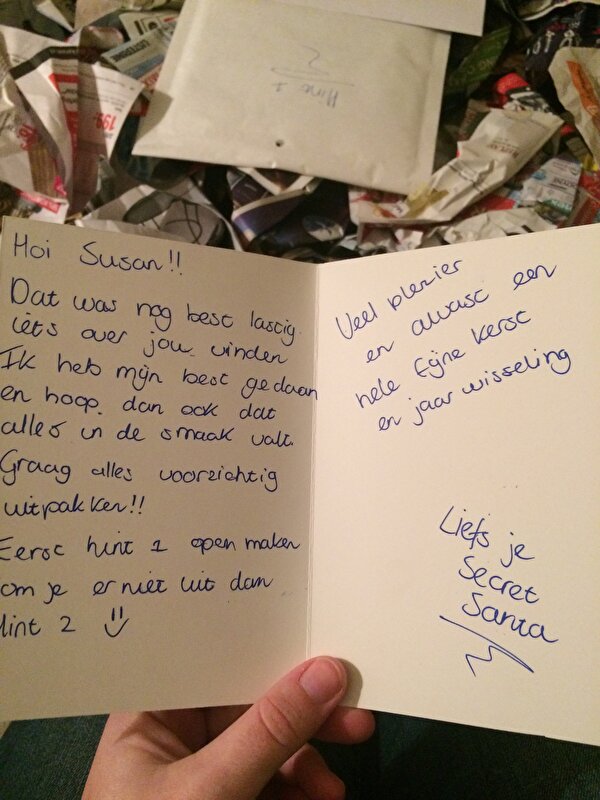 Hint 1
Hoi Susan!!
Dat was nog best lastig
iets over jou vinden
Ik heb mijn best gedaan
en hoop dan ook dat
alles in de smaak valt.
Graag alles voorzichtig
uitpakken!!
Eerst hint 1 open maken
om je er niet uit dan
Hint 2
Veel plezier
en alvast een
hele fijne kerst
en jaar wisseling
Liefs je
Secret
Santa